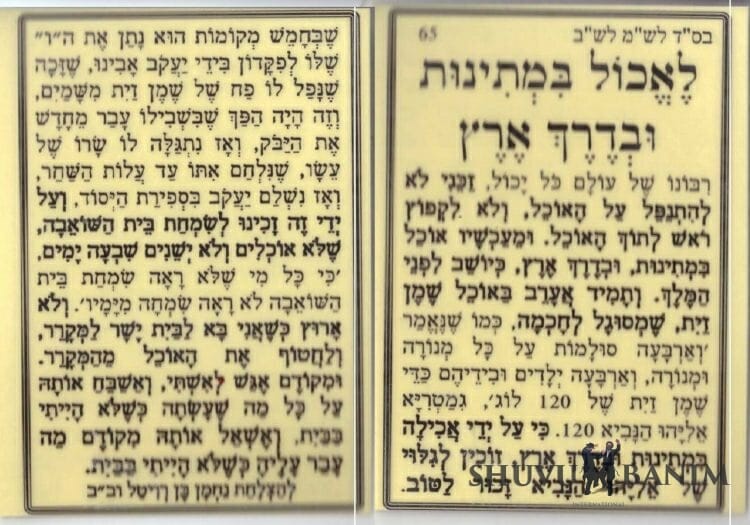 בס"ד לש"מ לש"ב 65
לֶאֱכוֹל בִּמְתִינוּת
וּבְדֶרֶךְ אֶרֶץ
רִבּוֹנוֹ שֶׁל עוֹלָם כֹּל יָכוֹל, זַכֵּנִי לֹא
לְהִתְנַפֵּל עַל הָאוֹכֶל, וְלֹא לִקְפּוֹץ
רֹאשׁ לְתוֹךְ הָאוֹכֶל. וּמֵעַכְשָׁיו אוֹכַל
בִּמְתִינוּת, וּבְדֶרֶךְ אֶרֶץ, כְּיוֹשֵׁב לִפְנֵי
הַמֶּלֶךְ. וְתָמִיד אֲעָרֵב בְּאוֹכֶל שֶׁמֶן
זַיִת, שֶׁמְסוּגָּל לְחָכְמָה, כְּמוֹ שֶׁנֶּאֱמַר
'וְאַרְבָּעָה סוּלָמוֹת עַל כָּל מְנוֹרָה
וּמְנוֹרָה, וְאַרְבָּעָה יְלָדִים וּבִידֵיהֶם כַּדֵּי
שֶׁמֶן זַיִת שֶׁל 120 לוֹג', גִּמַטְרִיָּא
אֵלִיָּהוּ הַנָּבִיא 120. כִּי עַל יְדֵי אֲכִילָה
בִּמְתִינוּת וּבְדֶרֶךְ אֶרֶץ, זוֹכִין לְגִלּוּי
שֶׁל אֵלִיָּהוּ הַנָּבִיא זָכוּר לַטּוֹב.
SHUVU BANIM
INTERNATIONAL
שֶׁבְּחָמֵשׁ מְקוֹמוֹת הוּא נָתַן אֶת ה"ו"
שֶׁלּוֹ לְפִקָּדוֹן בִּידֵי יַעֲקֹב אָבִינוּ, שֶׁזָּכָה
שֶׁנָּפַל לוֹ פַּח שֶׁל שֶׁמֶן זַיִת מִשָּׁמַיִם,
וְזֶה הָיָה הַפַּךְ שֶׁבִּשְׁבִילוֹ עָבַר מֵחָדָשׁ
אֶת הַיַּבֹּק, וְאָז נִתְגַּלָּה לוֹ שָׂרוֹ שֶׁל
עֵשָׂו, שֶׁנִּלְחַם אִתּוֹ עַד עֲלוֹת הַשַּׁחַר,
וְאָז נִשְׁלַם יַעֲקֹב בִּסְפִירַת הַיְסוֹד, וְעַל
יְדֵי זֶה זָכִינוּ לְשִׂמְחַת בֵּית הַשּׁוֹאֵבָה,
שֶׁלֹּא אוֹכְלִים וְלֹא יְשֵׁנִים שִׁבְעָה יָמִים,
'כִּי כָּל מִי שֶׁלֹּא רָאָה שִׂמְחַת בֵּית
הַשּׁוֹאֵבָה לֹא רָאָה שִׂמְחָה מִיָּמָיו'. וְלֹא
אָרוּץ כְּשֶׁאֲנִי בָּא לַבַּיִת יָשָׁר לַמְּקָרֵר,
וְלַחֲטוֹף אֶת הָאוֹכֶל מֵהַמְּקָרֵר.
וּמִקּוֹדֶם אֶגַּשׁ לְאִשְׁתִּי, וְאֲשַׁבֵּחַ אוֹתָהּ
עַל כָּל מַה שֶׁעָשְׂתָה כְּשֶׁלֹּא הָיִיתִי
בַּבַּיִת, וְאֶשְׁאַל אוֹתָהּ מִקּוֹדֶם מַה
עָבַר עָלֶיהָ כְּשֶׁלֹּא הָיִיתִי בַּבַּיִת.
להצלחת נחמן בן רויטל וב"ב